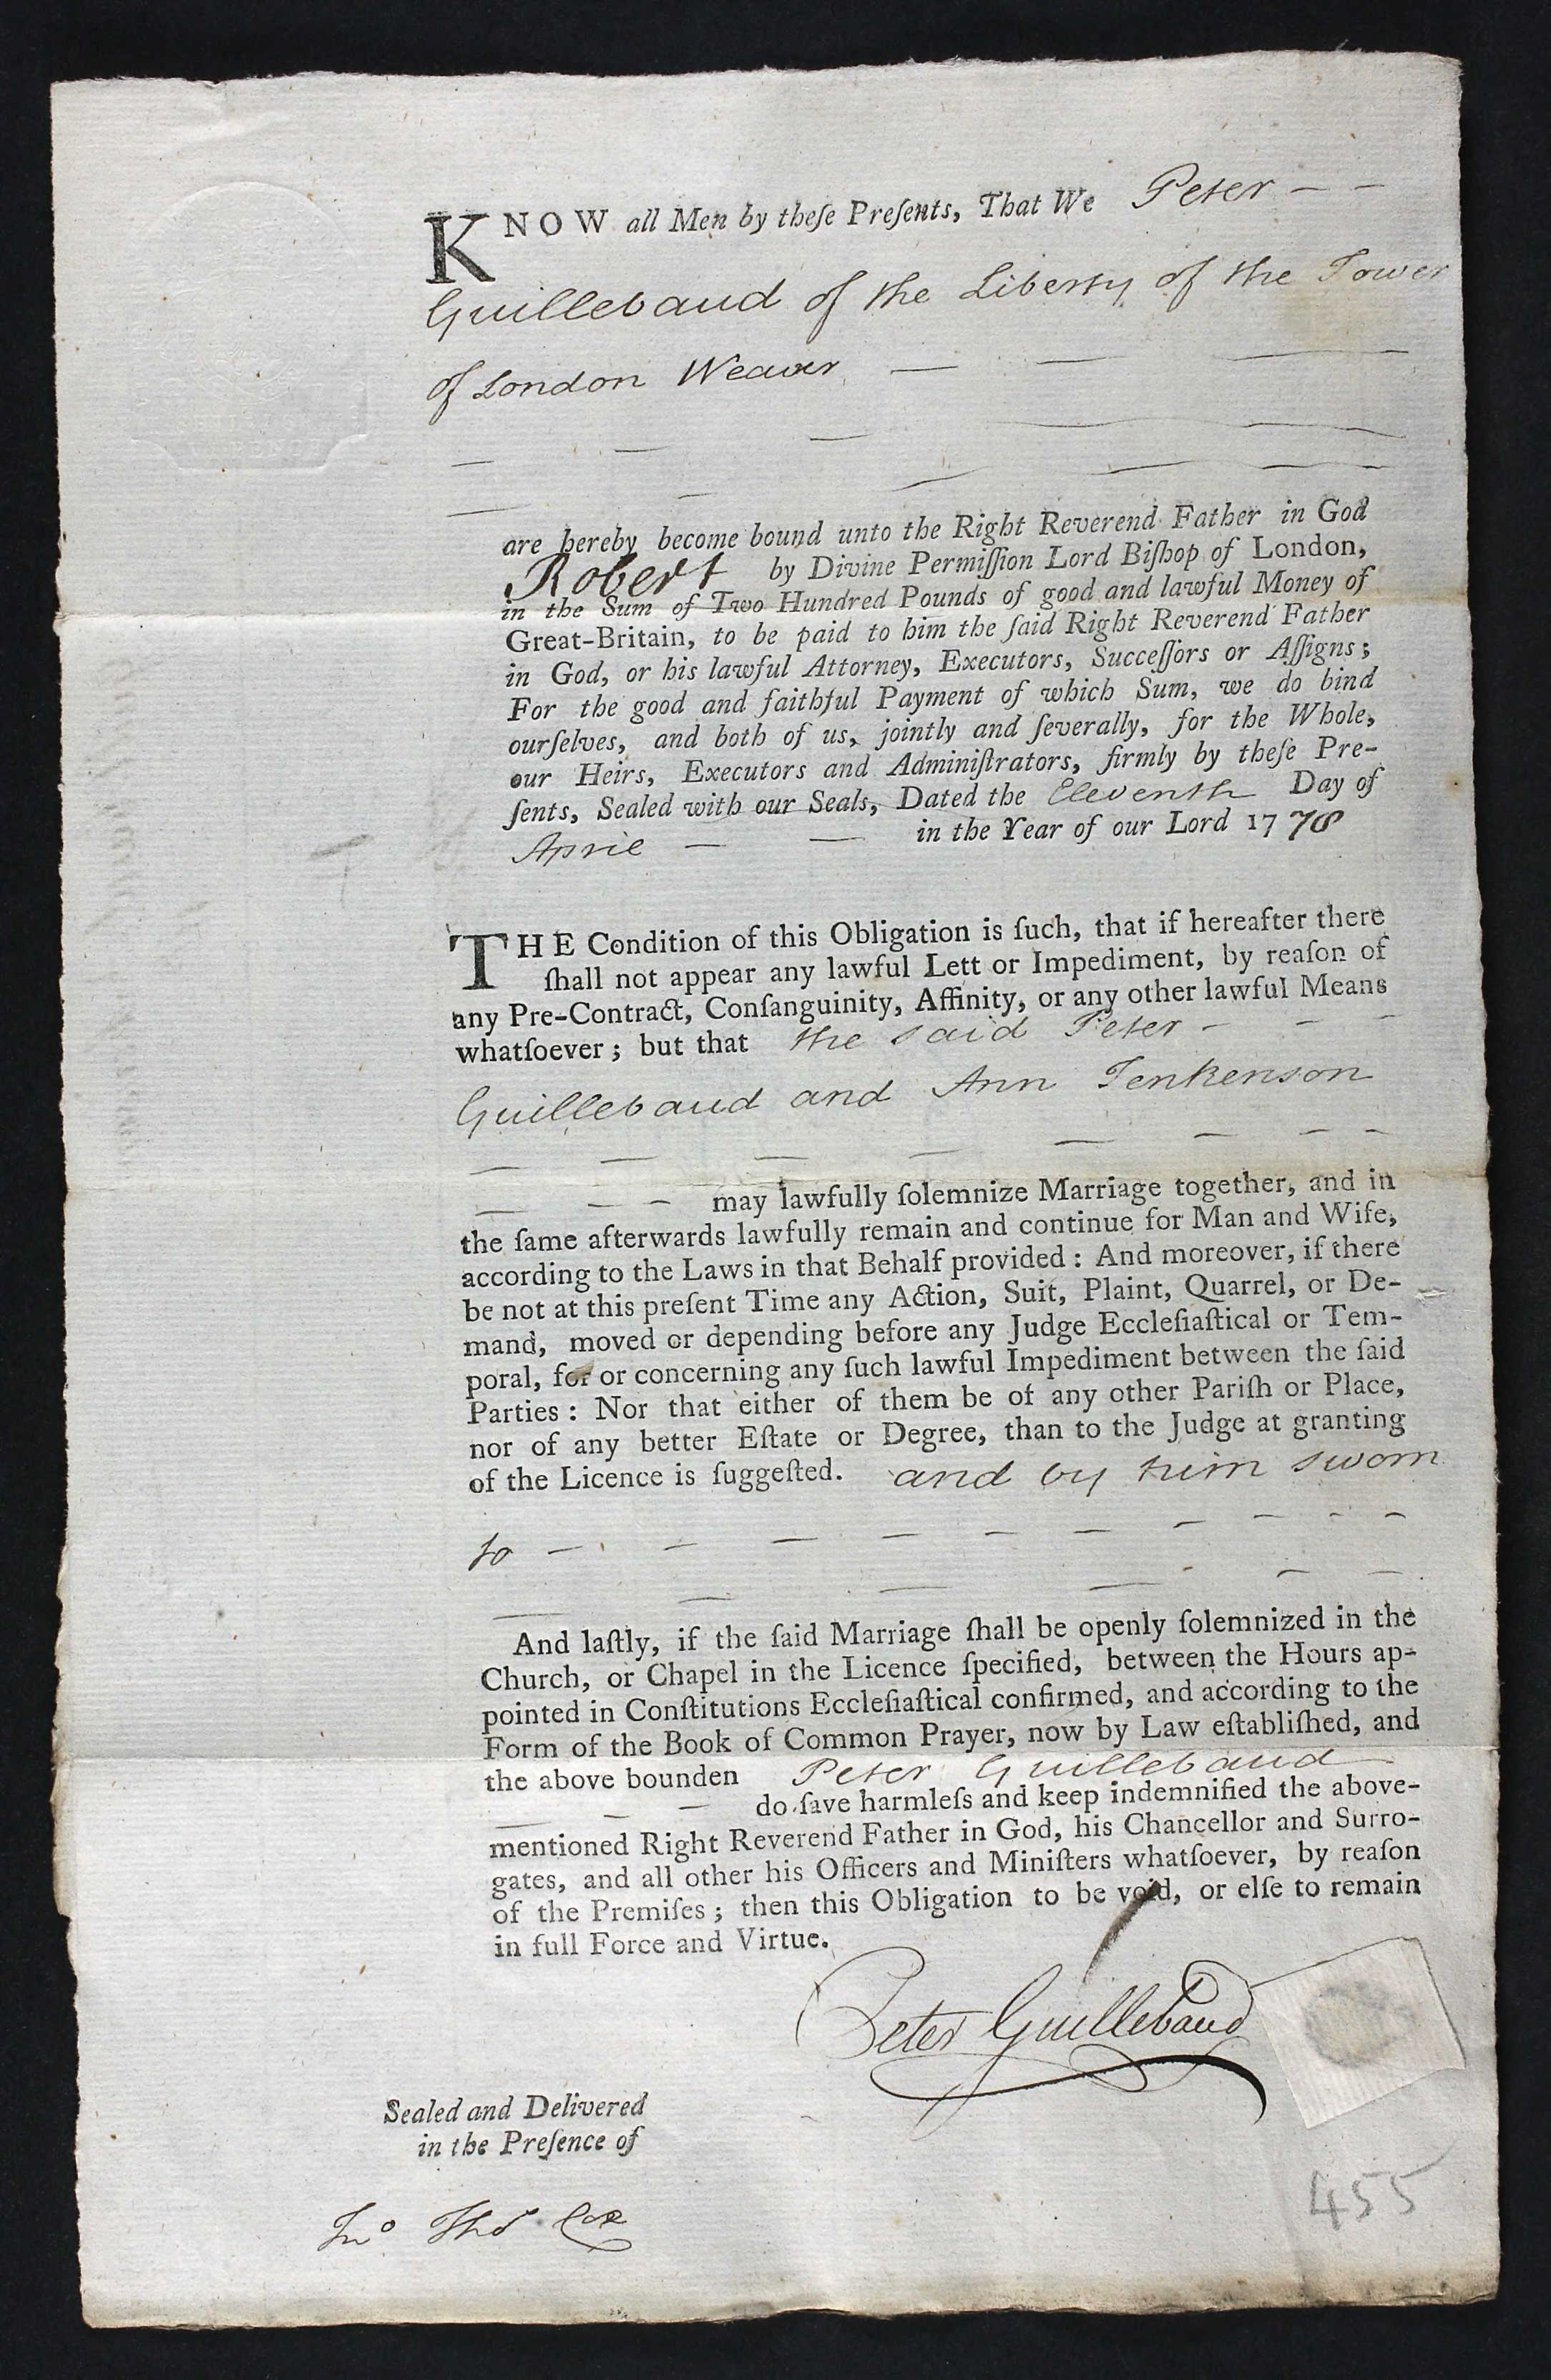 KNOW all Men by theſe Preſents, That We Peter - -
Guillebaud of the Liberty of the Tower
of London Weaver
are hereby become bound unto the Right Reverend Father in God
Robert by Divine Permiſſion Lord Biſhop of London,
in the Sum of Two Hundred Pounds of good and lawful Money of
Great-Britain, to be paid to him the ſaid Right Reverend Father
in God, or his lawful Attorney, Executors, Succeſſors or Aſſigns;
For the good and faithful Payment of which Sum, we do bind
ourſelves, and both of us, jointly and ſeverally, for the Whole,
our Heirs, Executors and Adminiſtrators, firmly by theſe Pre-
ſents, Sealed with our Seals, Dated the Eleventh Day of
April — — in the Year of our Lord 1778
THE Condition of this Obligation is ſuch, that if hereafter there
ſhall not appear any lawful Lett or Impediment, by reaſon of
any Pre-Contract, Conſanguinity, Affinity, or any other lawful Means
whatſoever; but that the said Peter - - -
Guillebaud and Ann Jenkenson
may lawfully ſolemnize Marriage together, and in
the ſame afterwards lawfully remain and continue for Man and Wife,
according to the Laws in that Behalf provided: And moreover, if there
be not at this preſent Time any Action, Suit, Plaint, Quarrel, or De-
mand, moved or depending before any Judge Eccleſiaſtical or Tem-
poral, for or concerning any ſuch lawful Impediment between the ſaid
Parties: Nor that either of them be of any other Pariſh or Place,
nor of any better Eſtate or Degree, than to the Judge at granting
of the Licence is ſuggeſted. and by him sworn
to
And laſtly, if the ſaid Marriage ſhall be openly ſolemnized in the
Church, or Chapel in the Licence ſpecified, between the Hours ap-
pointed in Conſtitutions Eccleſiaſtical confirmed, and according to the
Form of the Book of Common Prayer, now by Law eſtabliſhed, and
the above bounden Peter Guillebaud
do ſave harmleſs and keep indemnified the above-
mentioned Right Reverend Father in God, his Chancellor and Surro-
gates, and all other his Officers and Miniſters whatſoever, by reaſon
of the Premiſes; then this Obligation to be void, or elſe to remain
in full Force and Virtue.
Peter Guillebaud
Sealed and Delivered
in the Preſence of
Jno Thos Cox
455